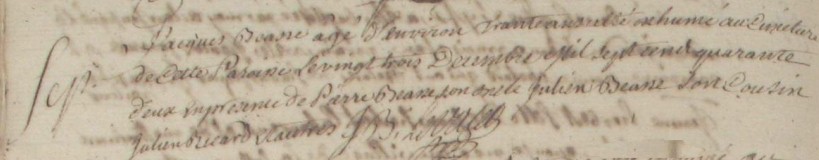 Jacques Beasse agé d'environ trante ans a esté inhumé au Cimetiere
Sep.re de Cette Paroisse le vingt trois Decembre mil sept cent quarante
deux en presence de Pierre Beasse son oncle Julien Beasse son Cousin
Julien Ricard et autres